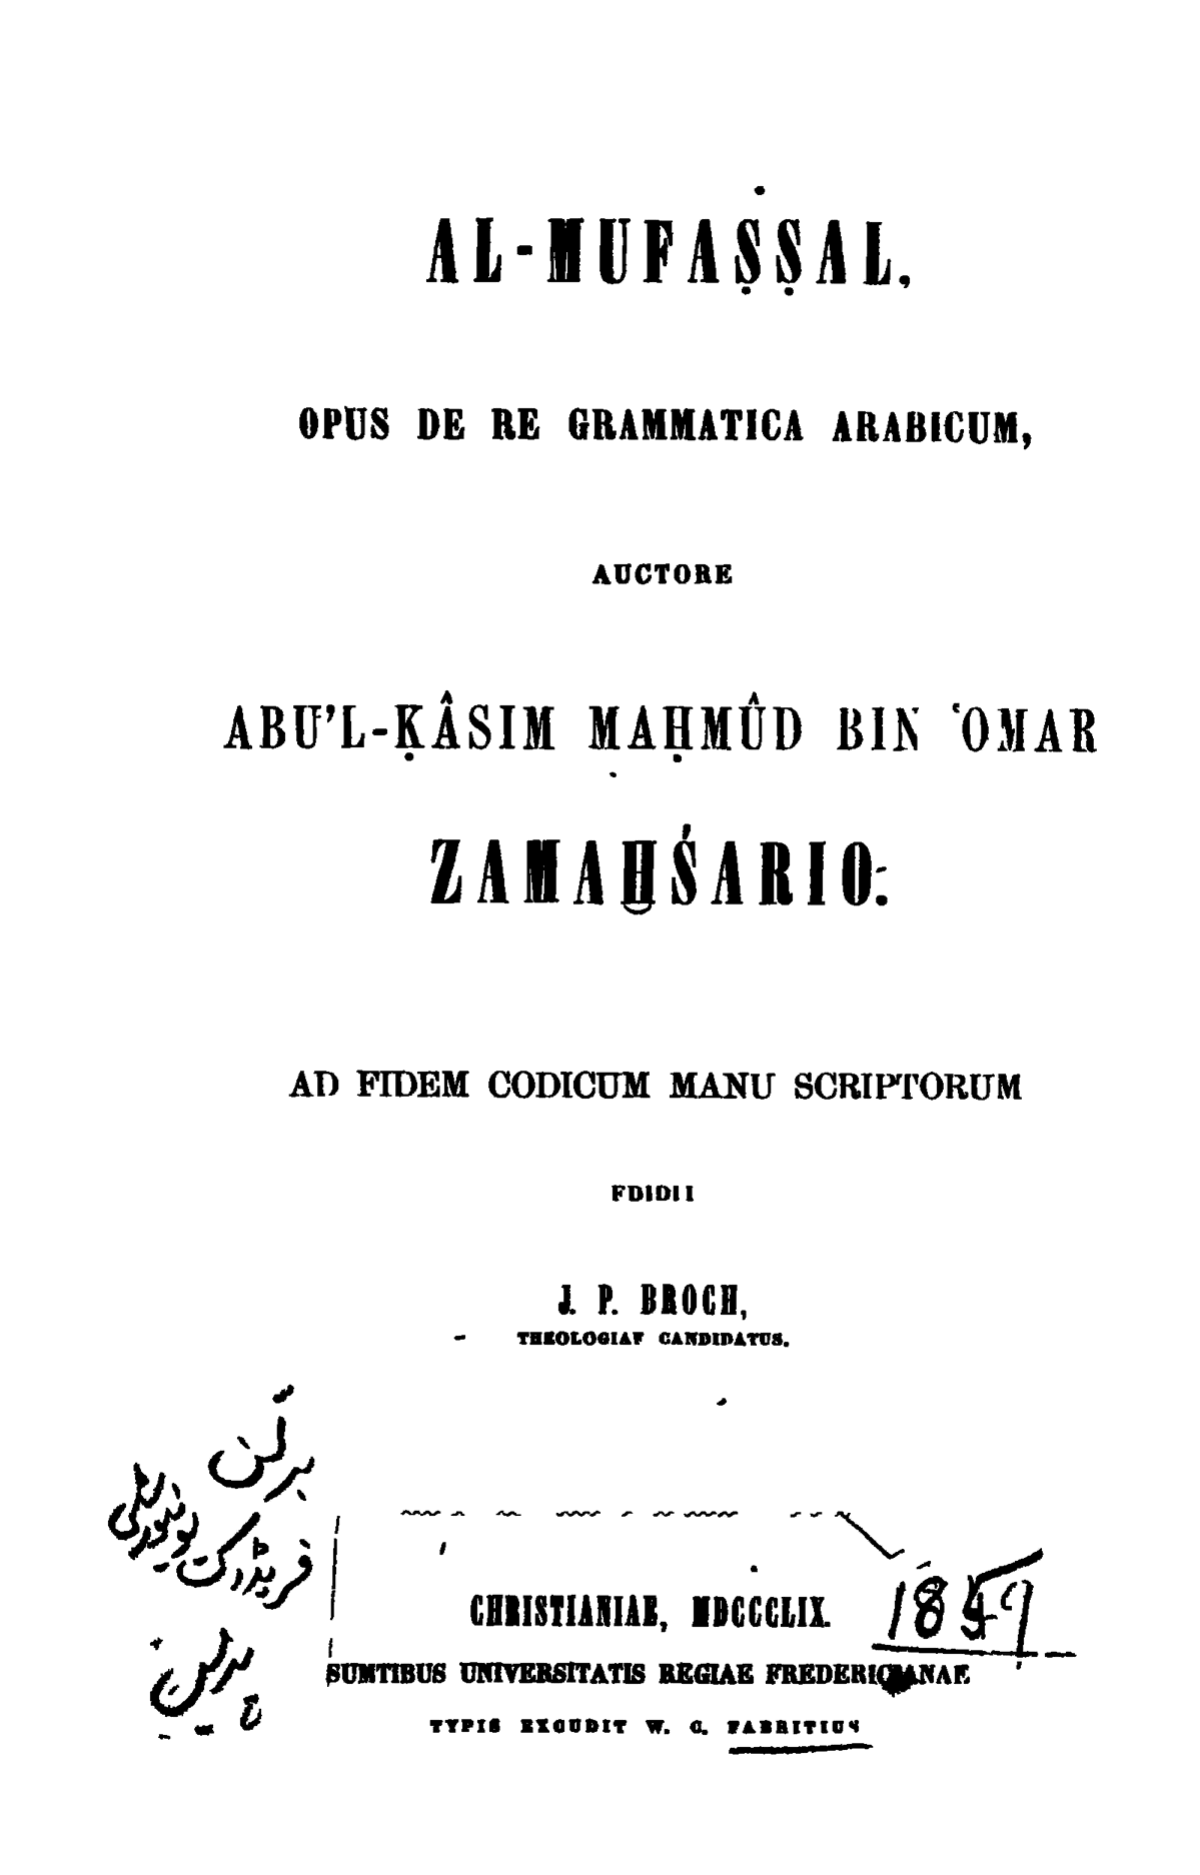 AL-MUFAṢṢAL,
OPUS DE RE GRAMMATICA ARABICUM,
AUCTORE
ABU'L-ḲÂSIM MAḤMÛD BIN ‘OMAR
ZAMAḪŚARIO.
AD FIDEM CODICUM MANU SCRIPTORUM
EDIDIT
J. P. BROCH,
THEOLOGIAE CANDIDATUS.
فریڈرک یونیورسٹی
CHRISTIANIAE, MDCCCLIX.
1859
SUMTIBUS UNIVERSITATIS REGIAE FREDERICIANAE
TYPIS EXCUDIT W. C. FABRITIUS